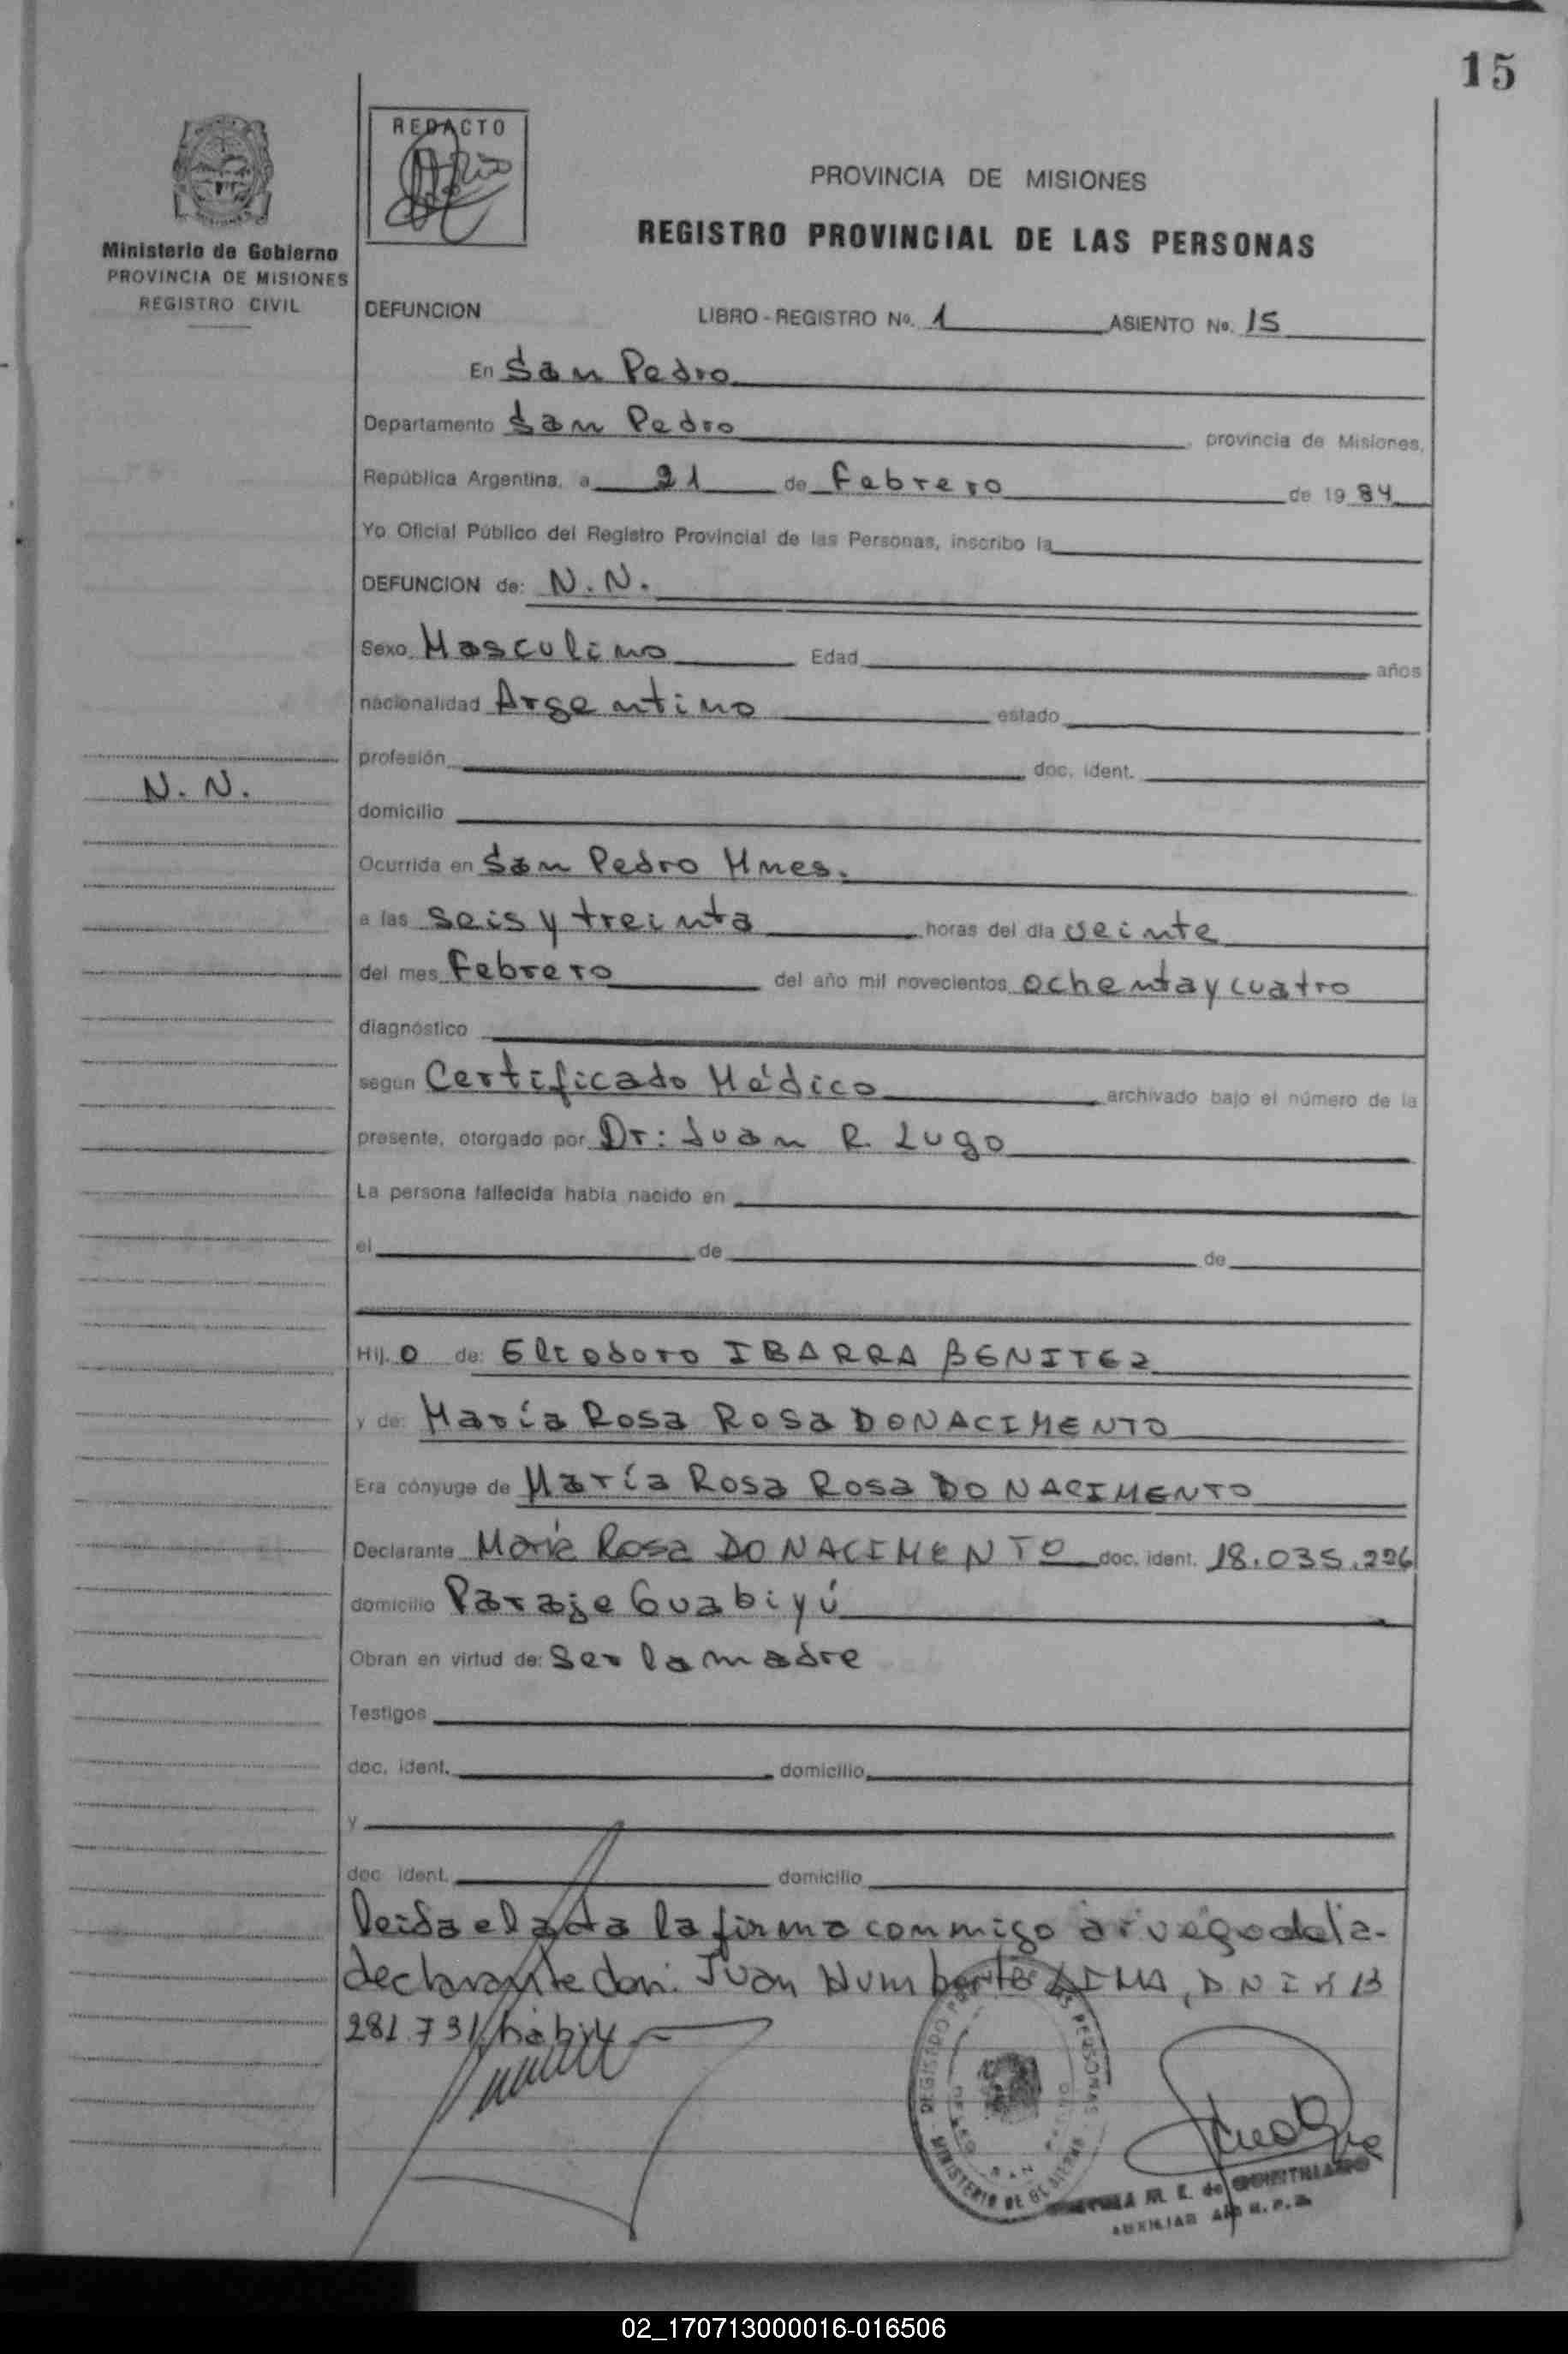 15
REDACTO
Ministerio de Gobierno
PROVINCIA DE MISIONES
REGISTRO CIVIL
PROVINCIA DE MISIONES
REGISTRO PROVINCIAL DE LAS PERSONAS
DEFUNCION LIBRO - REGISTRO No. 1 ASIENTO No. 15
En San Pedro
Departamento San Pedro, provincia de Misiones,
República Argentina, a 21 de Febrero de 1984
Yo Oficial Público del Registro Provincial de las Personas, inscribo la
DEFUNCION de: N.N.
Sexo Masculino Edad años
nacionalidad Argentino estado
profesión doc. ident.
N. N.
domicilio
Ocurrida en San Pedro Mnes.
a las seis y treinta horas del día veinte
del mes Febrero del año mil novecientos ochenta y cuatro
diagnóstico
según Certificado Médico archivado bajo el número de la
presente, otorgado por Dr: Juan R. Lugo
La persona fallecida había nacido en
el de de
Hij. o de: Eliodoro IBARRA BENITEZ
y de: María Rosa Rosa DONACIMENTO
Era cónyuge de María Rosa Rosa DO NACIMENTO
Declarante María Rosa DO NACIMENTO doc. ident. 18.035.226
domicilio Paraje Guabiyú
Obran en virtud de: Ser la madre
Testigos
doc. ident. domicilio
y
doc. ident. domicilio
leida el acta la firma conmigo a ruego de la
declarante don: Juan Humberto LIMA, DNI N 13
281.731 habil
REGISTRO PERSONAS
MINISTERIO DE GOBIERNO
SAN PEDRO
M. E. de
AUXILIAR R. P. P.
02_170713000016-016506